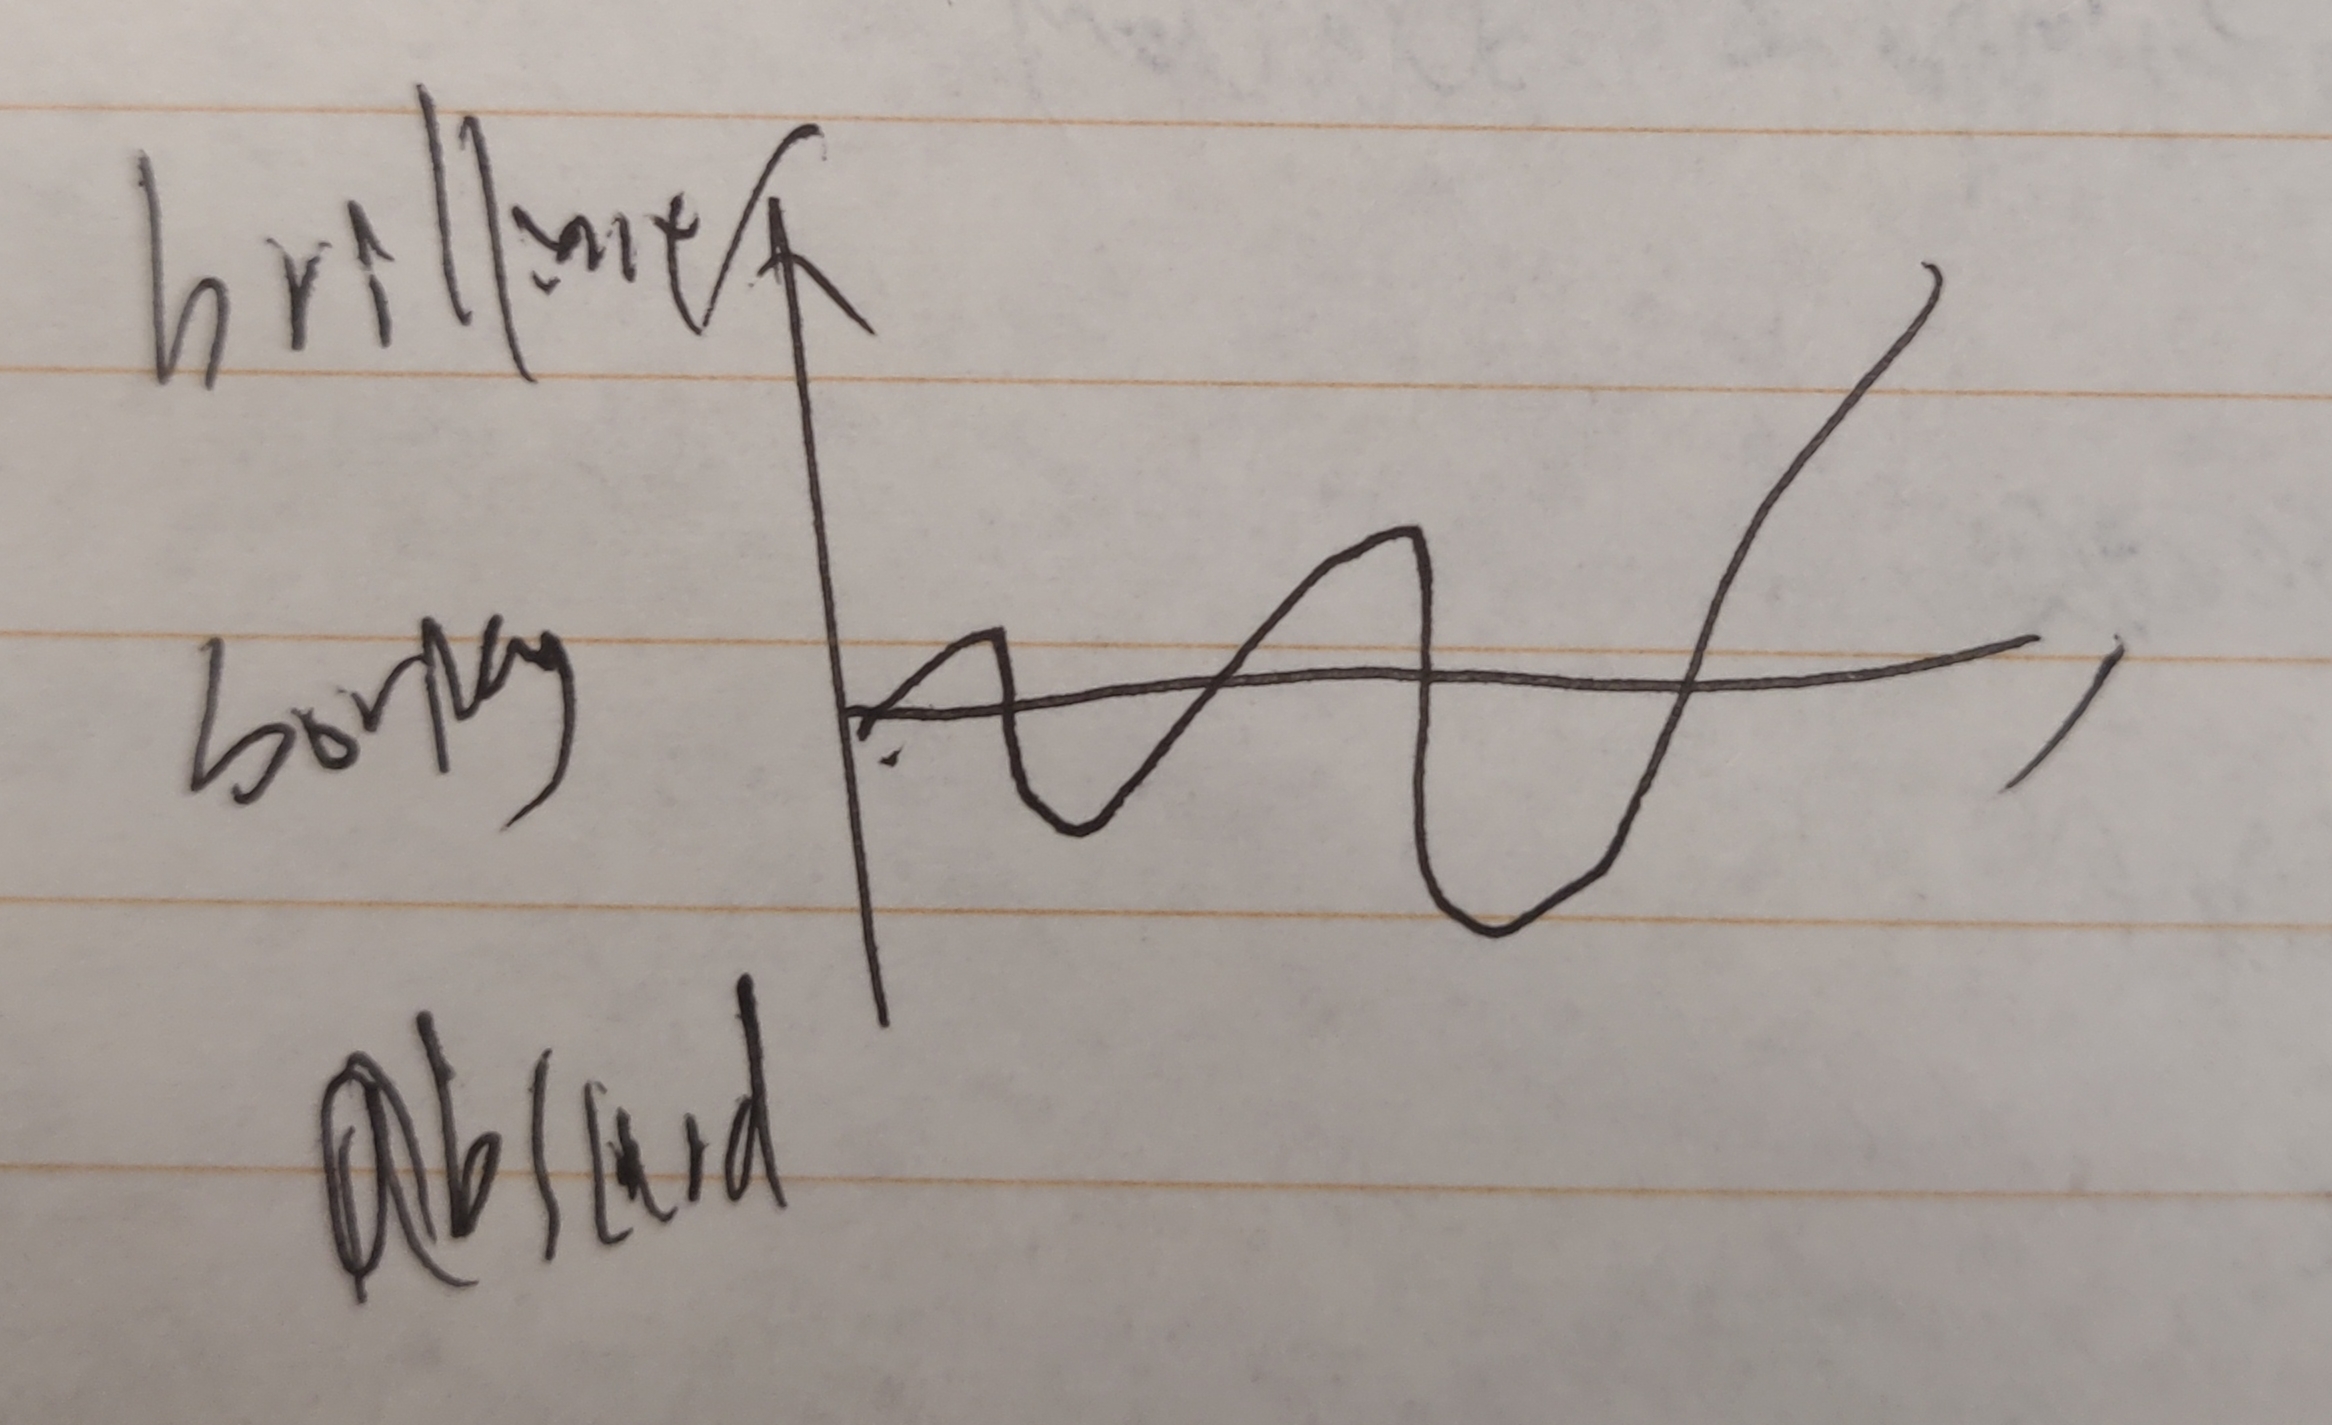 brilliant
borky
absurd